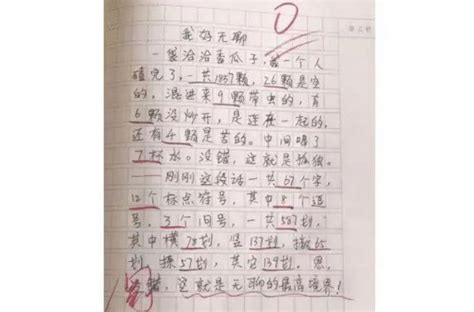 0
我好无聊
一袋洽洽香瓜子,我一个人
嗑完了,一共1857颗,26颗是空
的,混进来9颗带虫的,有
6颗没炒开,是连在一起的,
还有4颗是苦的。中间喝了
7杯水。没错,这就是孤独。
——刚刚这段话一共67个字,
12个标点符号,其中8个逗
号,3个句号,一共587划,
其中横78划,竖137划,撇65
划,捺57划,其它139划。恩,
错,这就是无聊的最高境界!